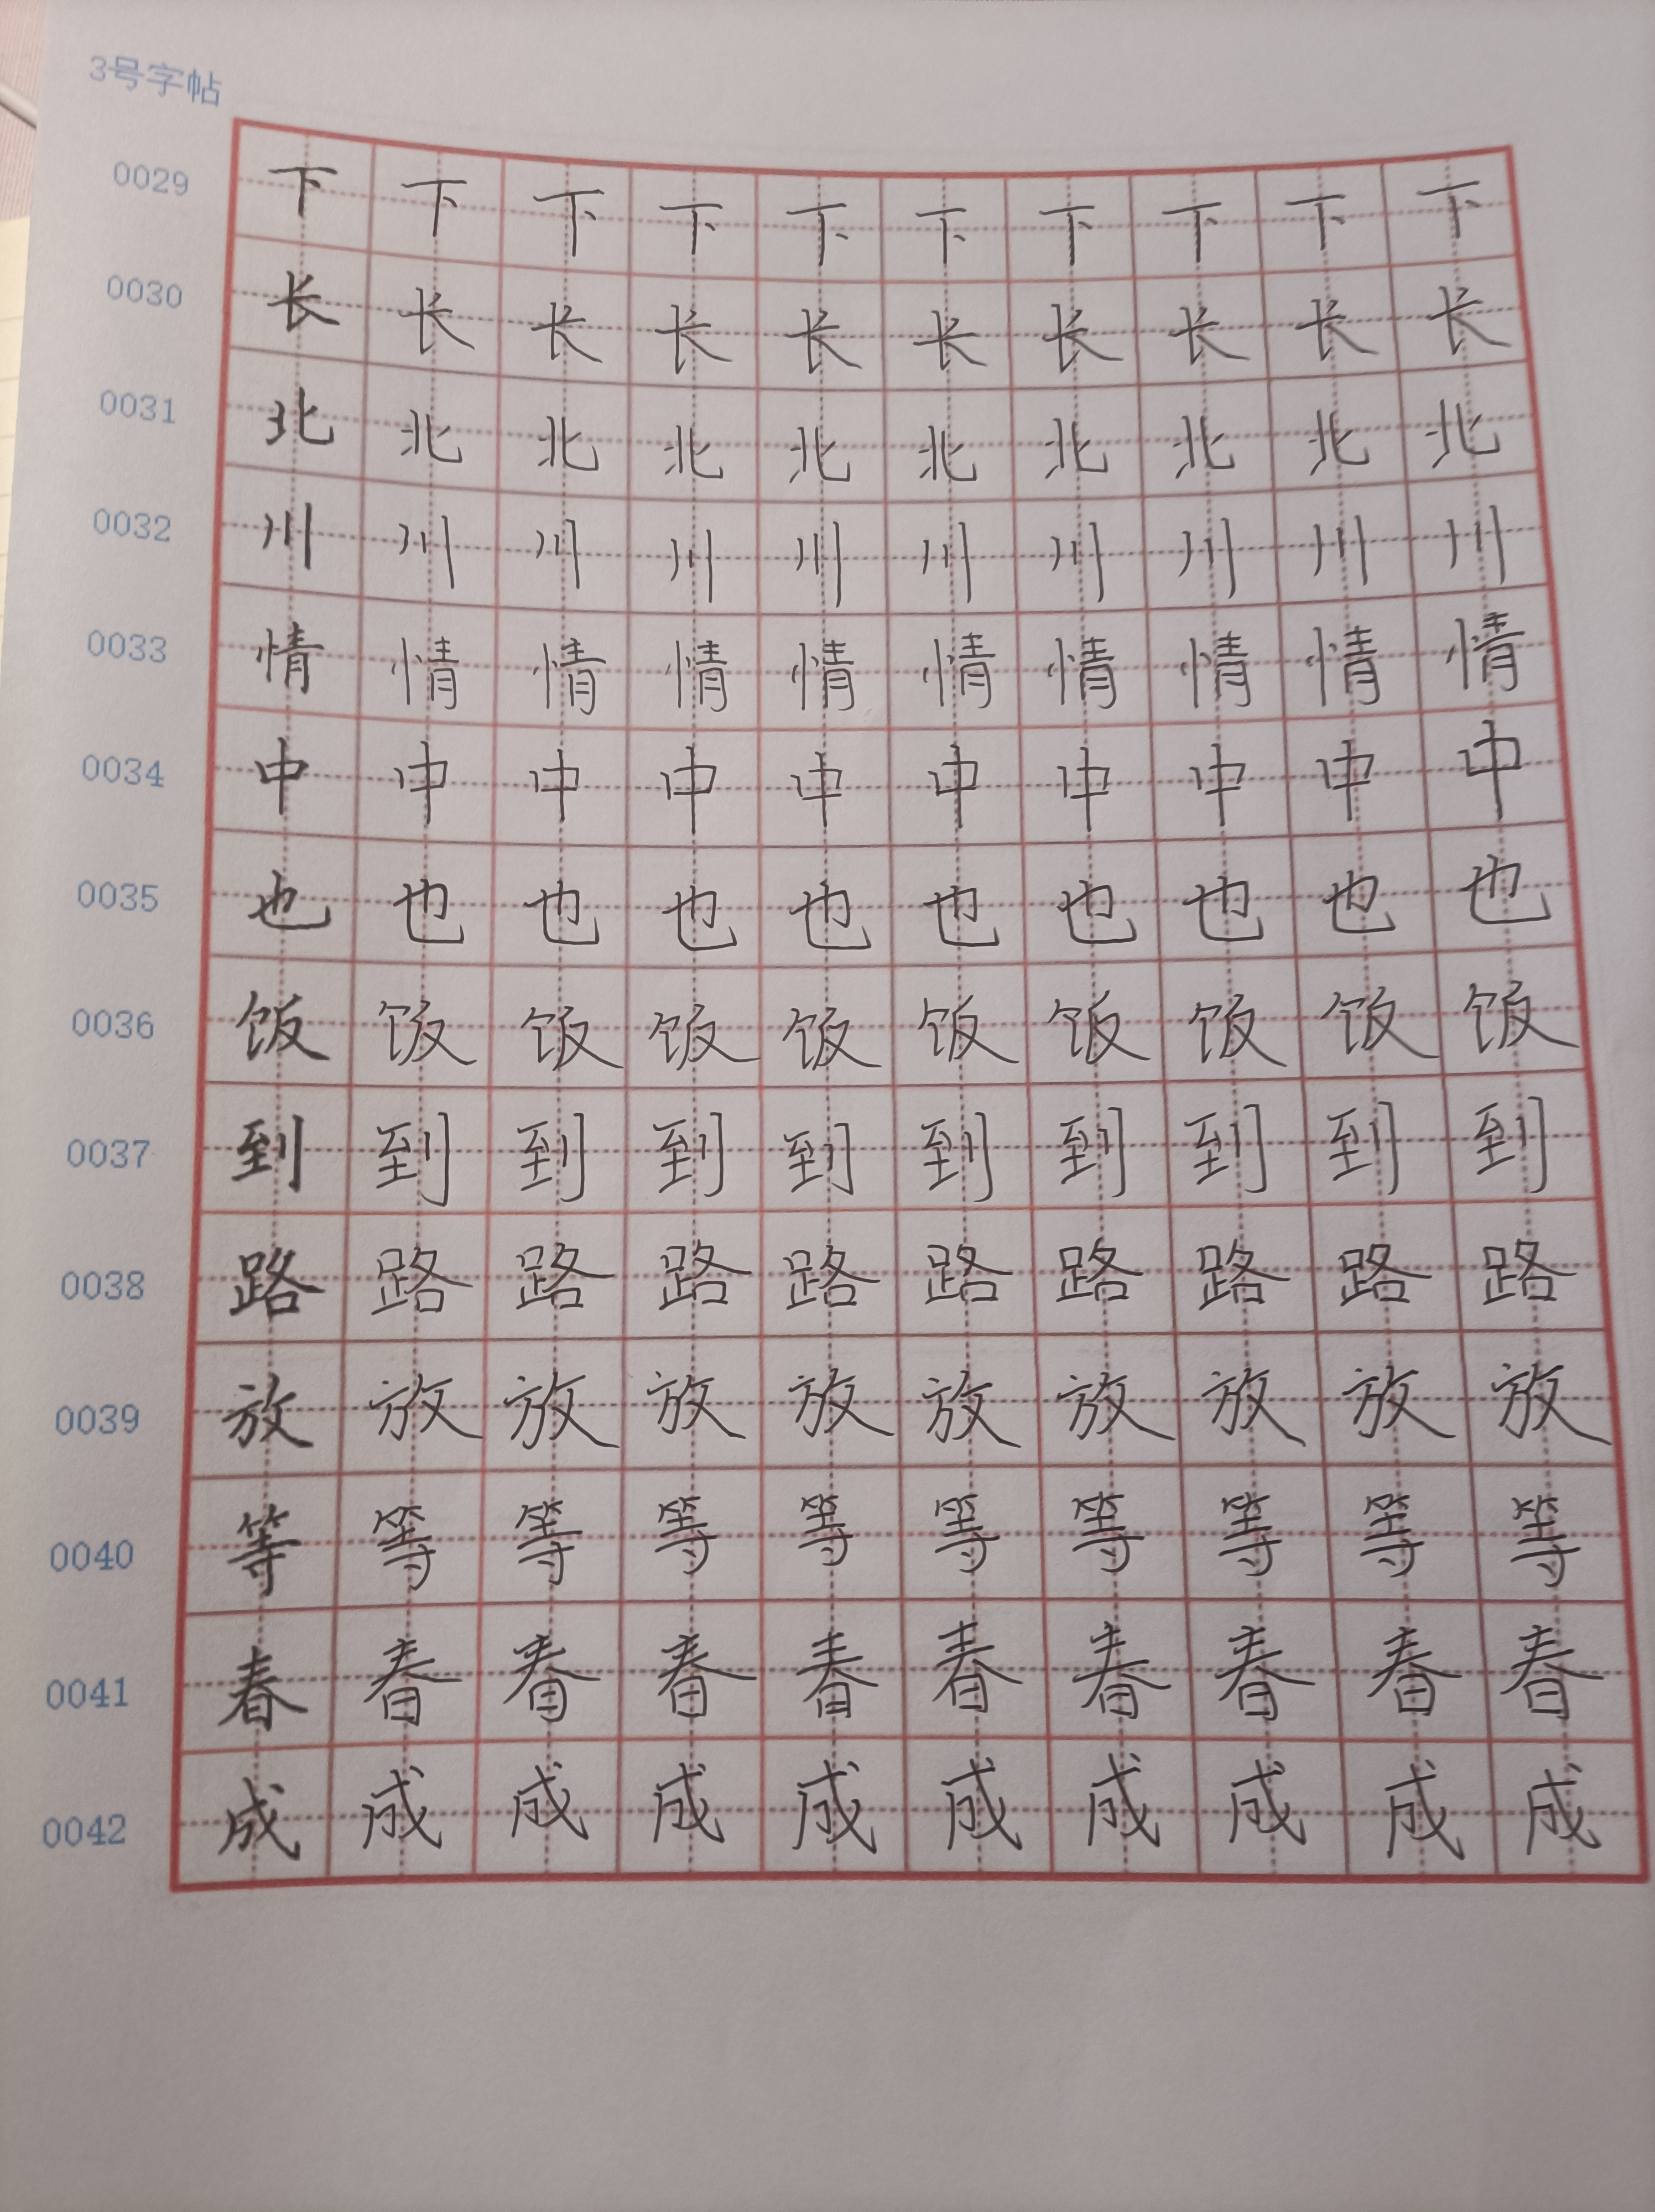 3号字帖
0029 下 下 下 下 下 下 下 下 下 下
0030 长 长 长 长 长 长 长 长 长 长
0031 北 北 北 北 北 北 北 北 北 北
0032 川 川 川 川 川 川 川 川 川 川
0033 情 情 情 情 情 情 情 情 情 情
0034 中 中 中 中 中 中 中 中 中 中
0035 也 也 也 也 也 也 也 也 也 也
0036 饭 饭 饭 饭 饭 饭 饭 饭 饭 饭
0037 到 到 到 到 到 到 到 到 到 到
0038 路 路 路 路 路 路 路 路 路 路
0039 放 放 放 放 放 放 放 放 放 放
0040 等 等 等 等 等 等 等 等 等 等
0041 春 春 春 春 春 春 春 春 春 春
0042 成 成 成 成 成 成 成 成 成 成